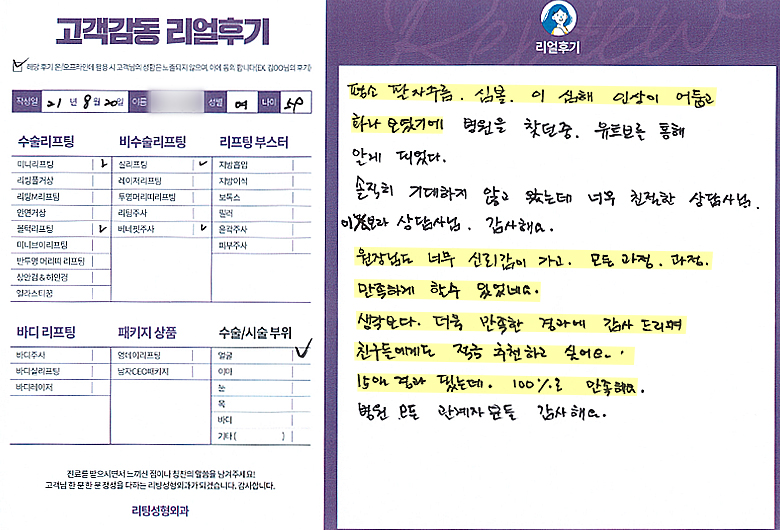 고객감동 리얼후기
해당 후기 온/오프라인에 활용 시 고객님의 성함은 노출되지 않으며, 이에 동의 합니다(EX. 김OO님의 후기)
작성일 21년 8월 20일 이름 성별 여 나이 54
수술리프팅
미니리프팅
리링풀거상
리링M리프팅
안면거상
볼턱리프팅
미니브이리프팅
반투명 머리띠 리프팅
상안검&하안검
얼라스티꿈
비수술리프팅
실리프팅
레이저리프팅
투명머리띠리프팅
리팅주사
비너핏주사
리프팅 부스터
지방흡입
지방이식
보톡스
필러
윤곽주사
피부주사
바디 리프팅
바디주사
바디실리프팅
바디레이저
패키지 상품
영데이리프팅
남자CEO패키지
수술/시술 부위
얼굴
이마
눈
목
바디
기타( )
진료를 받으시면서 느끼신 점이나 칭찬의 말씀을 남겨주세요!
고객님 한 분 한 분 정성을 다하는 리팅성형외과가 되겠습니다. 감사합니다.
리팅성형외과
리얼후기
평소 팔자주름, 심볼, 이 심해 인상이 어둡고
화나 보였기에 병원을 찾던중, 유튜브를 통해
알게 되었다.
솔직히 기대하지 않고 왔는데 너무 친절한 상담사님,
상담사님, 감사해요.
원장님도 너무 신뢰감이 가고, 모든 과정, 과정,
만족하게 할수 있었네요.
생각보다. 더욱 만족한 결과에 감사 드리며
친구들에게도 적극 추천하고 싶어요.
15일 경과 됬는데. 100%로 만족해요.
병원 모든 관계자 분들 감사해요.